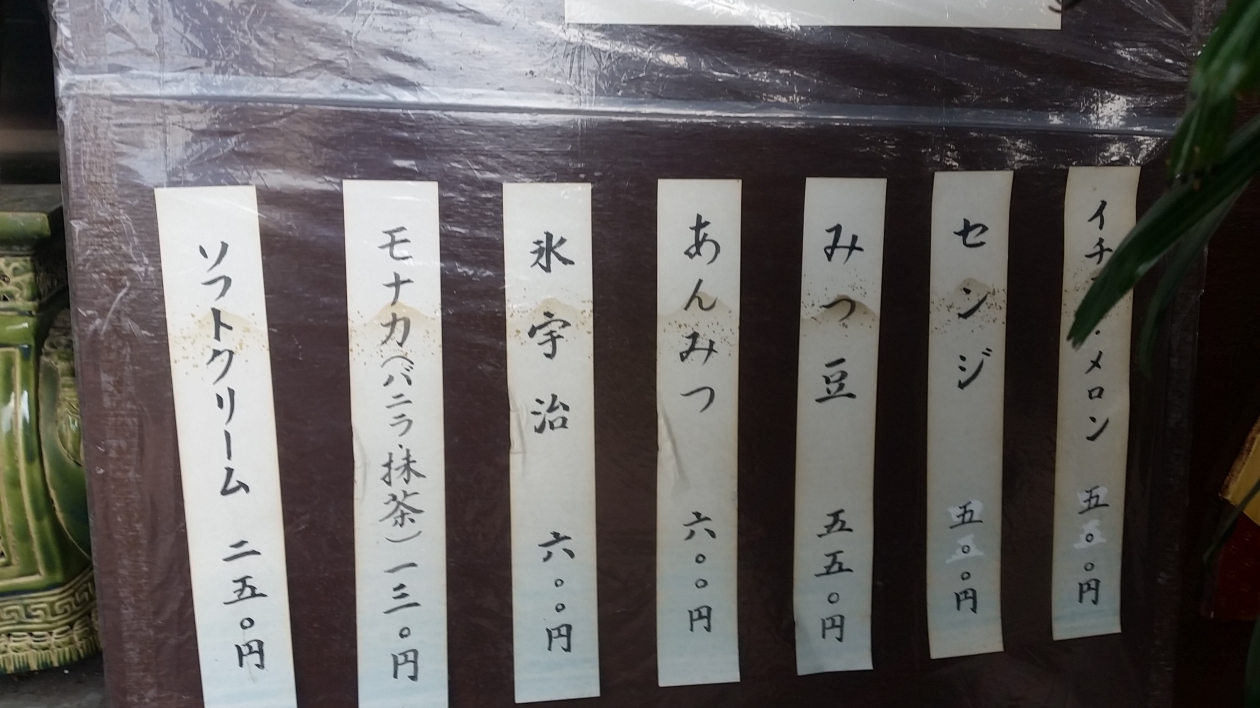 イチ・メロン 五〇〇円
センジ 五〇〇円
みつ豆 五五〇円
あんみつ 六〇〇円
氷宇治 六〇〇円
モナカ(バニラ・抹茶)一三〇円
ソフトクリーム 二五〇円